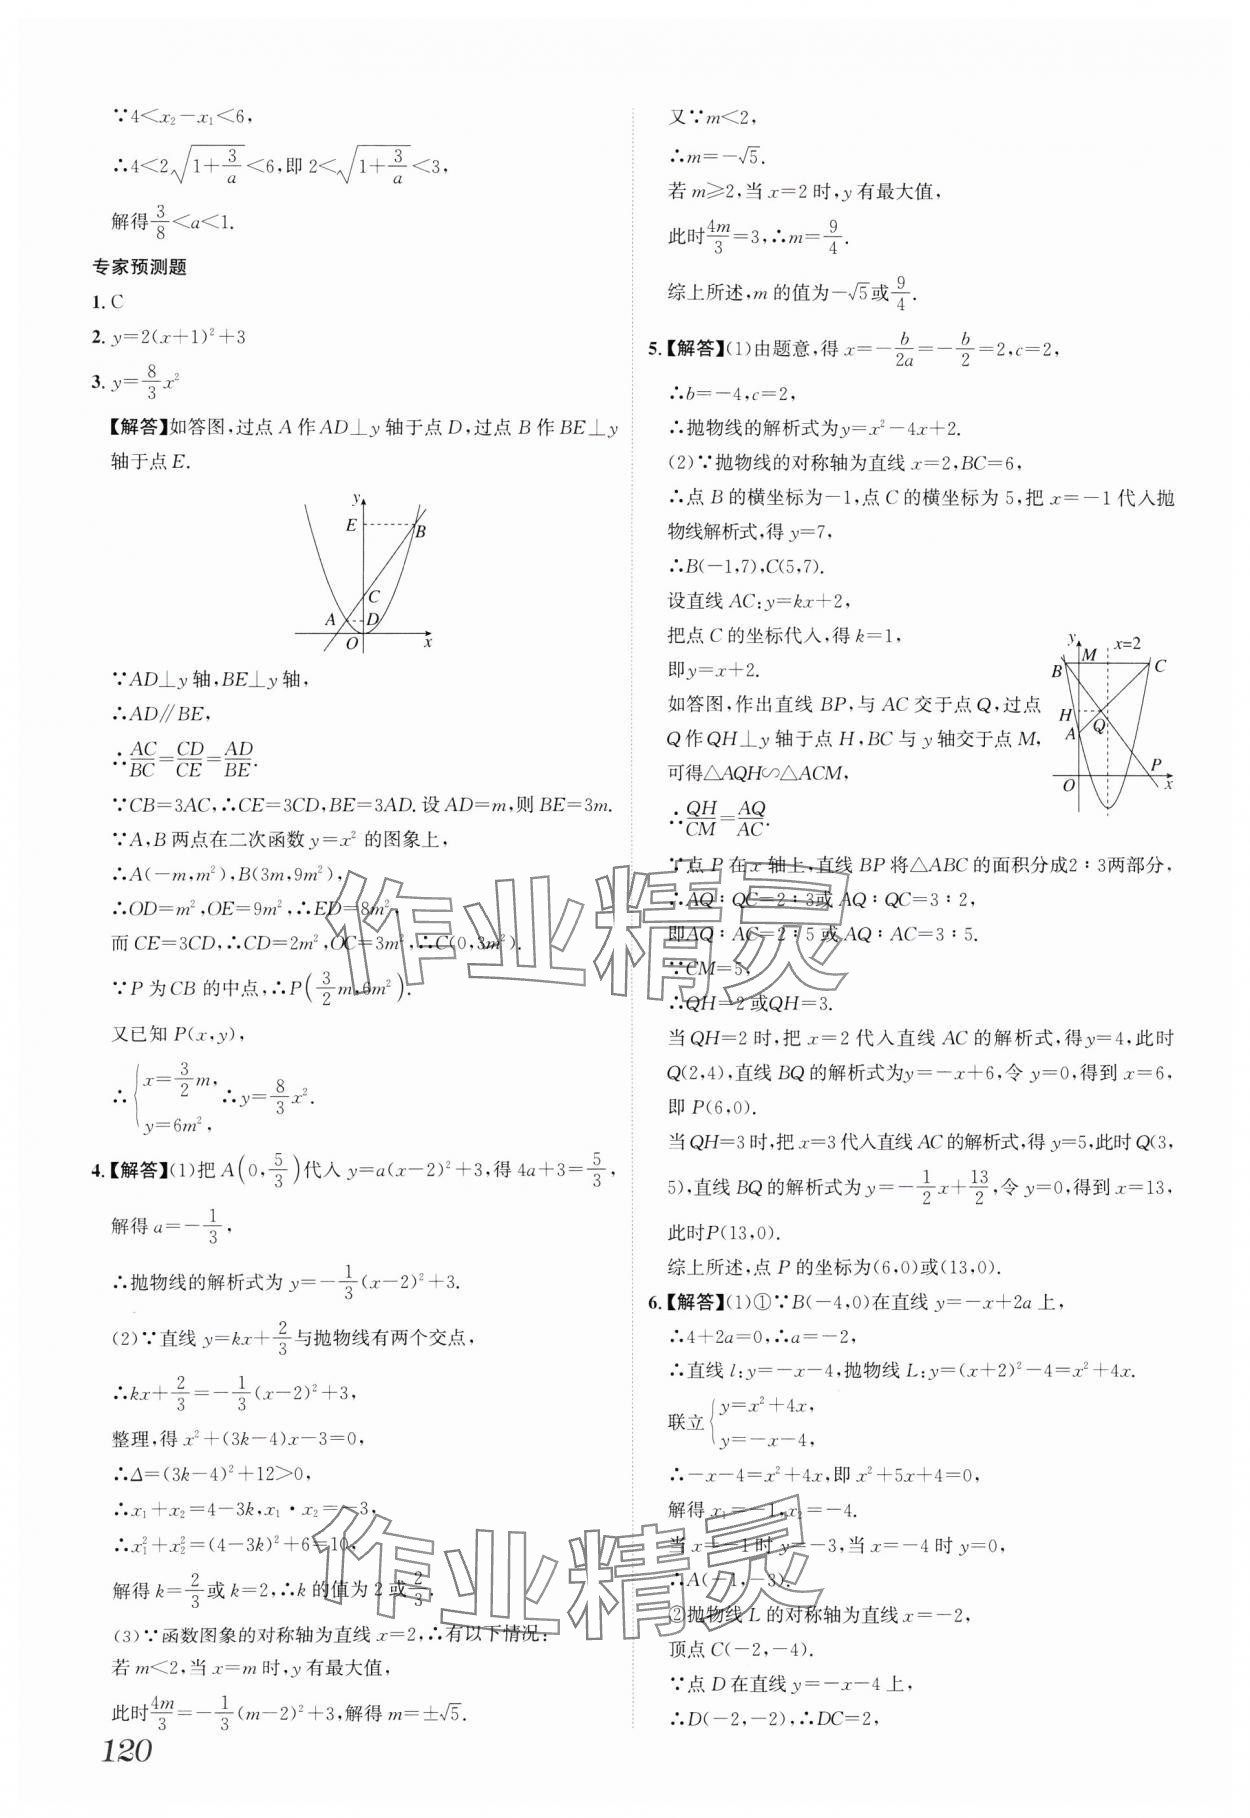 ∵4<x₂-x₁<6,
∴4<2√(1+3/a)<6,即2<√(1+3/a)<3,
解得3/8<a<1.
专家预测题
1. C
2. y=2(x+1)²+3
3. y=8/3x²
【解答】如答图,过点A作AD⊥y轴于点D,过点B作BE⊥y
轴于点E.
y
E
B
C
A
D
O
x
∵AD⊥y轴,BE⊥y轴,
∴AD∥BE,
∴AC/BC=CD/CE=AD/BE.
∵CB=3AC,∴CE=3CD,BE=3AD.设AD=m,则BE=3m.
∵A,B两点在二次函数y=x²的图象上,
∴A(-m,m²),B(3m,9m²),
∴OD=m²,OE=9m²,∴ED=8m²,
而CE=3CD,∴CD=2m²,OC=3m²,∴C(0,3m²).
∵P为CB的中点,∴P(3/2m,6m²).
又已知P(x,y),
∴{x=3/2m, y=6m², ∴y=8/3x².
4.【解答】(1)把A(0,5/3)代入y=a(x-2)²+3,得4a+3=5/3,
解得a=-1/3,
∴抛物线的解析式为y=-1/3(x-2)²+3.
(2)∵直线y=kx+2/3与抛物线有两个交点,
∴kx+2/3=-1/3(x-2)²+3,
整理,得x²+(3k-4)x-3=0,
∴Δ=(3k-4)²+12>0,
∴x₁+x₂=4-3k,x₁·x₂=-3,
∴x₁²+x₂²=(4-3k)²+6=10,
解得k=2/3或k=2,∴k的值为2或2/3.
(3)∵函数图象的对称轴为直线x=2,∴有以下情况:
若m<2,当x=m时,y有最大值,
此时4m/3=-1/3(m-2)²+3,解得m=±√5.
120
又∵m<2,
∴m=-√5.
若m≥2,当x=2时,y有最大值,
此时4m/3=3,∴m=9/4.
综上所述,m的值为-√5或9/4.
5.【解答】(1)由题意,得x=-b/2a=-b/2=2,c=2,
∴b=-4,c=2,
∴抛物线的解析式为y=x²-4x+2.
(2)∵抛物线的对称轴为直线x=2,BC=6,
∴点B的横坐标为-1,点C的横坐标为5,把x=-1代入抛
物线解析式,得y=7,
∴B(-1,7),C(5,7).
设直线AC:y=kx+2,
把点C的坐标代入,得k=1,
即y=x+2.
如答图,作出直线BP,与AC交于点Q,过点
Q作QH⊥y轴于点H,BC与y轴交于点M,
可得△AQH∽△ACM,
∴QH/CM=AQ/AC.
y
x=2
M
B
C
H
A
Q
P
O
x
∵点P在x轴上,直线BP将△ABC的面积分成2:3两部分,
∴AQ:QC=2:3或AQ:QC=3:2,
即AQ:AC=2:5或AQ:AC=3:5.
∵CM=5,
∴QH=2或QH=3.
当QH=2时,把x=2代入直线AC的解析式,得y=4,此时
Q(2,4),直线BQ的解析式为y=-x+6,令y=0,得到x=6,
即P(6,0).
当QH=3时,把x=3代入直线AC的解析式,得y=5,此时Q(3,
5),直线BQ的解析式为y=-1/2x+13/2,令y=0,得到x=13,
此时P(13,0).
综上所述,点P的坐标为(6,0)或(13,0).
6.【解答】(1)①∵B(-4,0)在直线y=-x+2a上,
∴4+2a=0,∴a=-2,
∴直线l:y=-x-4,抛物线L:y=(x+2)²-4=x²+4x.
联立{y=x²+4x, y=-x-4,
∴-x-4=x²+4x,即x²+5x+4=0,
解得x₁=-1,x₂=-4.
当x=-1时y=-3,当x=-4时y=0,
∴A(-1,-3).
②抛物线L的对称轴为直线x=-2,
顶点C(-2,-4).
∵点D在直线y=-x-4上,
∴D(-2,-2),∴DC=2,
作业精灵
作业精灵